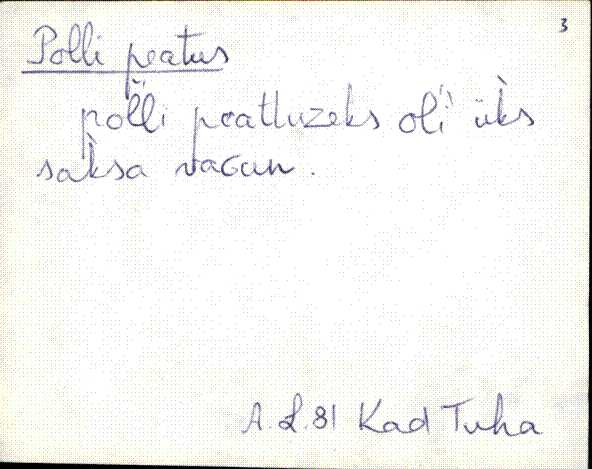 3
Polli peatus
põlli peatuzeks oĺi ùks
sàksa vaGun.
A.L.81 Kad Tuha